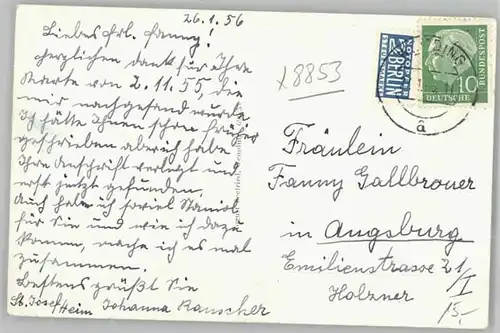 26.1.56
Liebes Frl. Fanny!
Herzlichen Dank für Ihre
Karte vom 2.11.55, die
mir nachgesand wurde.
Ich hätte Ihnen schon früher
geschrieben aber ich habe
Ihre Anschrift verlegt und
erst jetzt gefunden.
Auch habe ich soviel Staniol
für Sie und wie ich dazu
komm, mache ich es mal
zusammen.
Bestens grüßt Sie
Johanna Rauscher
St. Josef
Heim
x8853
NOTOPFER
BERLIN
STEUERMARKE
DEUTSCHE
BUNDESPOST
10
a
Fräulein
Fanny Gallbroner
in Augsburg
Emilienstrasse 21/I
Holzner
15,-